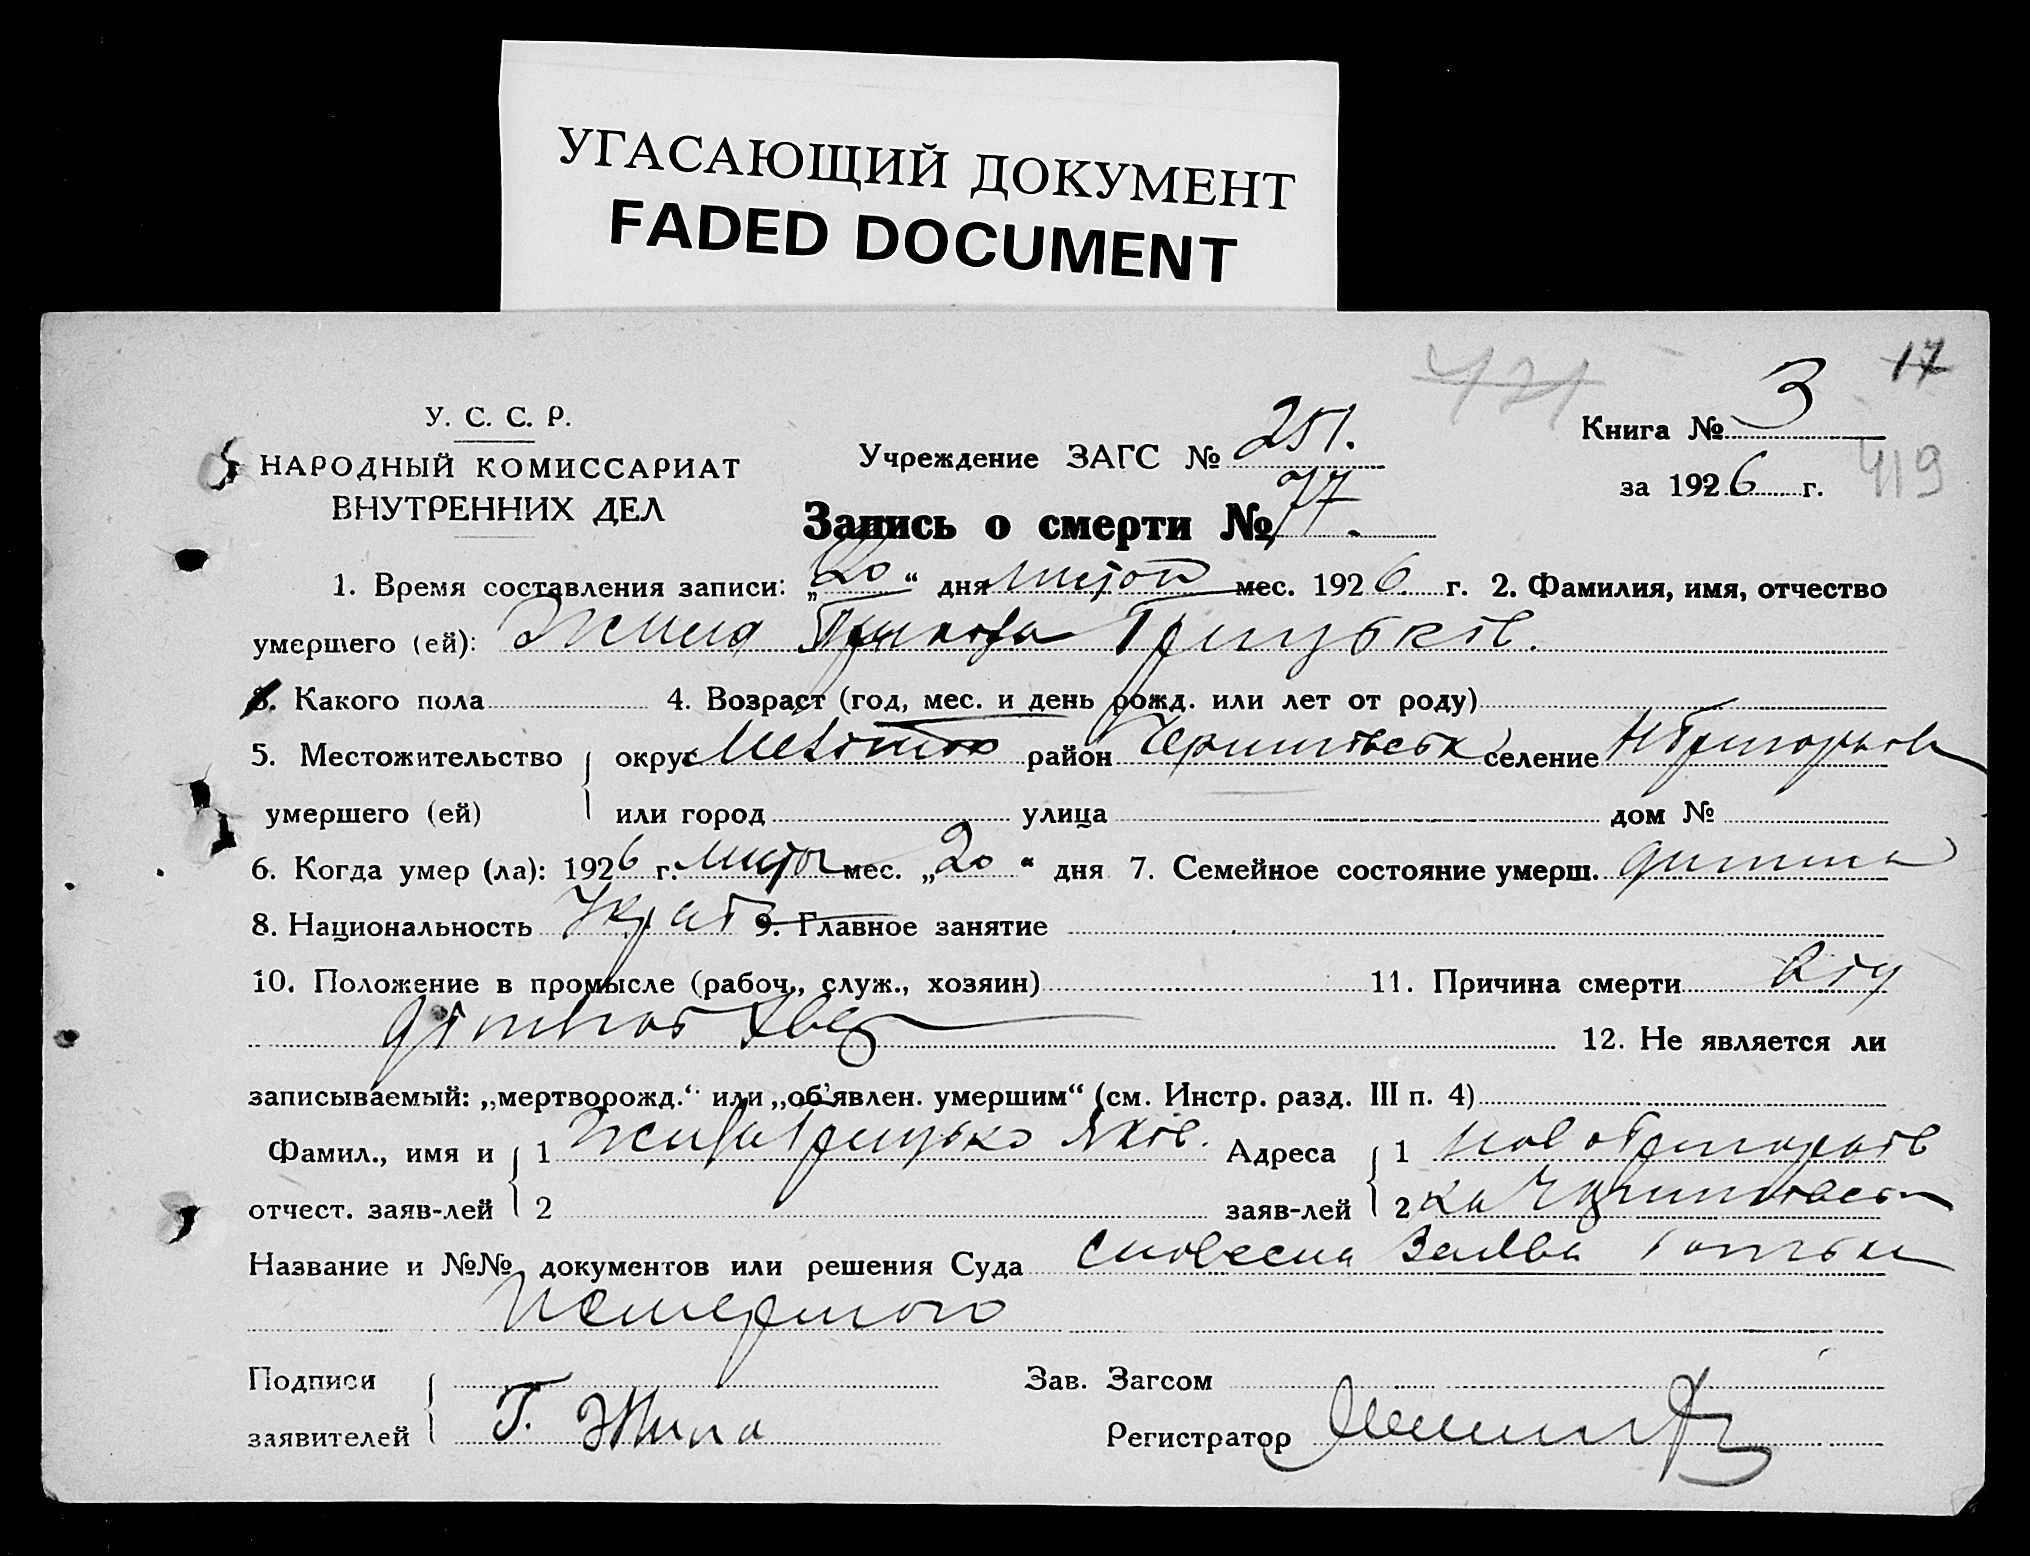 УГАСАЮЩИЙ ДОКУМЕНТ
FADED DOCUMENT
17
421
У. С. С. Р.
НАРОДНЫЙ КОМИССАРИАТ
ВНУТРЕННИХ ДЕЛ
Учреждение ЗАГС № 251.
Книга № 3
за 1926 г. 419
Запись о смерти № 77.
1. Время составления записи: „20“ дня мес. 1926 г. 2. Фамилия, имя, отчество
умершего (ей): Жила Грицьків.
3. Какого пола 4. Возраст (год, мес. и день рожд. или лет от роду)
5. Местожительство округ район селение
умершего (ей) или город улица дом №
6. Когда умер (ла): 1926 г. мес. „20“ дня 7. Семейное состояние умерш. дитина
8. Национальность 9. Главное занятие
10. Положение в промысле (рабоч., служ., хозяин) 11. Причина смерти від
12. Не является ли
записываемый: „мертворожд.“ или „об'явлен. умершим“ (см. Инстр. разд. III п. 4)
Фамил., имя и 1 Жила Грицько Яків. Адреса 1
отчест. заяв-лей 2 заяв-лей 2
Название и №№ документов или решения Суда Словесна
Подписи Зав. Загсом
заявителей Г. Жила Регистратор